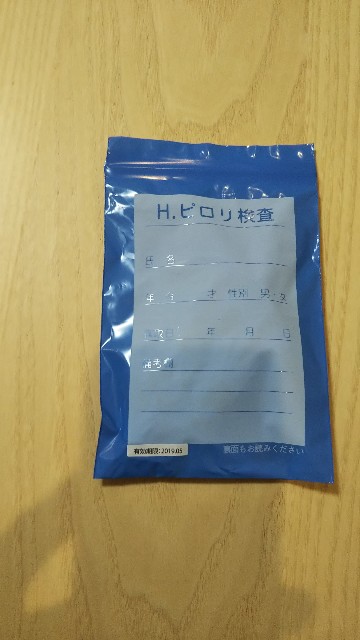 H.ピロリ検査
氏 名
年 令 才 性別 男・女
採取日 年 月 日
備考欄
有効期限:2019.05
裏面もお読みください